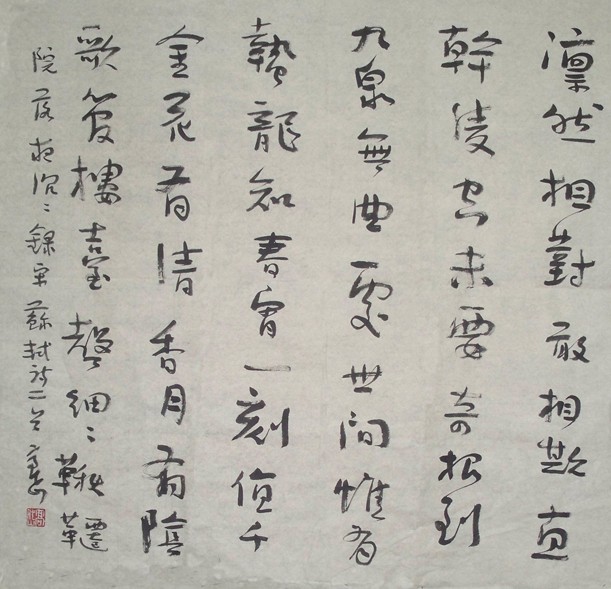 凜然相對敢相欺直
幹凌空未要奇根到
九泉無曲處世間惟有
蟄龍知春宵一刻值千
金花有清香月有陰
歌管樓臺聲細〻鞦韆
院落夜沉〻錄宋蘇軾詩二首